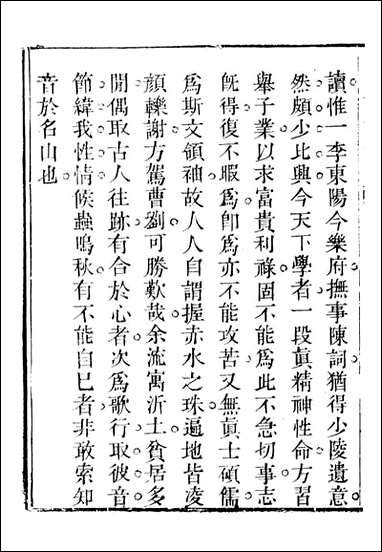 讀惟一李東陽今樂府撫事陳詞猶得少陵遺意
然頗少比興今天下學者一段眞精神性命方習
舉子業以求富貴利祿固不能爲此不急切事志
旣得復不暇爲卽爲亦不能攻苦又無眞士碩儒
爲斯文領袖故人人自謂握赤水之珠遍地皆凌
顏轢謝方駕曹劉可勝歎哉余流寓沂土貧居多
閒偶取古人往跡有合於心者次爲歌行取彼音
節緯我性情候蟲鳴秋有不能自已者非敢索知
音於名山也